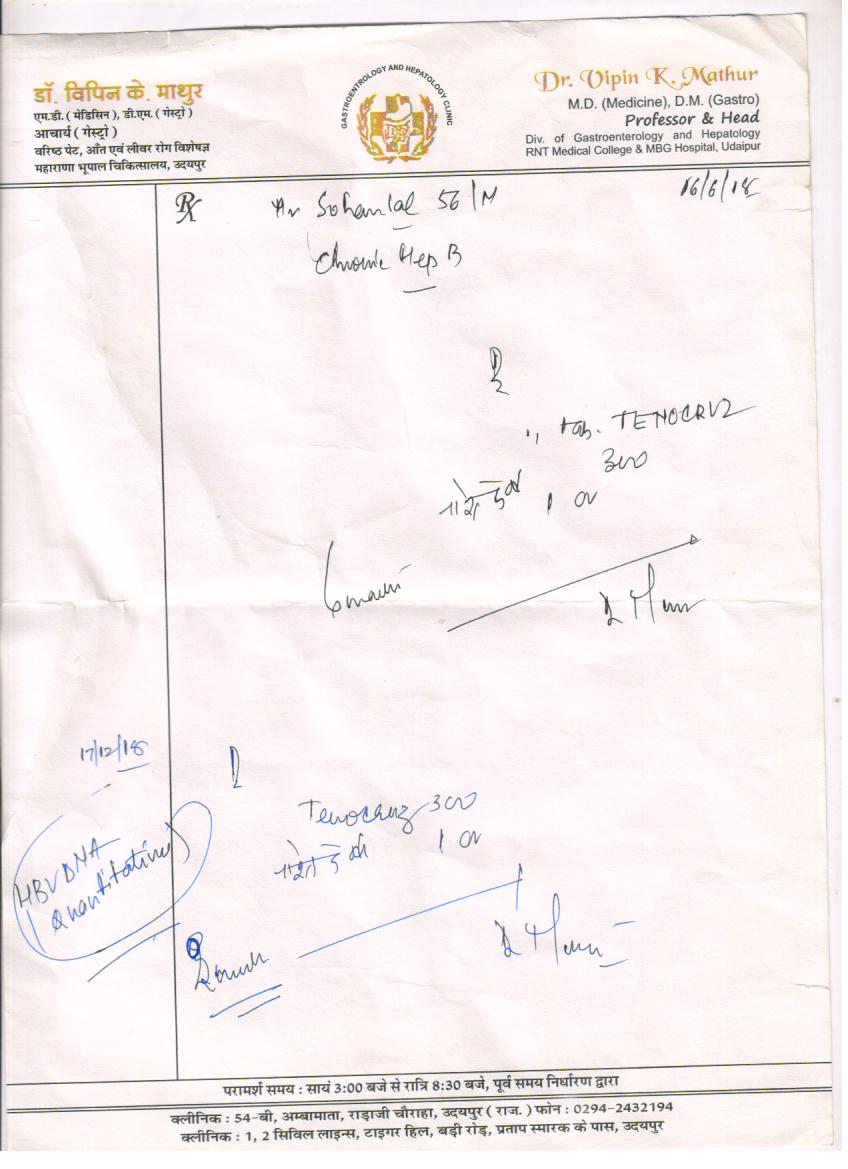 डॉ. विपिन के. माथुर
एम.डी. ( मेडिसिन ), डी.एम. ( गेस्ट्रो )
आचार्य ( गेस्ट्रो )
वरिष्ठ पेट, आँत एवं लीवर रोग विशेषज्ञ
महाराणा भूपाल चिकित्सालय, उदयपुर
GASTROENTROLOGY AND HEPATOLOGY CLINIC
Dr. Vipin K. Mathur
M.D. (Medicine), D.M. (Gastro)
Professor & Head
Div. of Gastroenterology and Hepatology
RNT Medical College & MBG Hospital, Udaipur
Rx
Sohanlal 56/M
16/6/18
Chronic Hep B
tab. TENOCRUZ
300
1
17/12/18
Tenocruz 300
1
HBV DNA
(Quantitative)
परामर्श समय : सायं 3:00 बजे से रात्रि 8:30 बजे, पूर्व समय निर्धारण द्वारा
क्लीनिक : 54-बी, अम्बामाता, राड़ाजी चौराहा, उदयपुर ( राज. ) फोन : 0294-2432194
क्लीनिक : 1, 2 सिविल लाइन्स, टाइगर हिल, बड़ी रोड़, प्रताप स्मारक के पास, उदयपुर